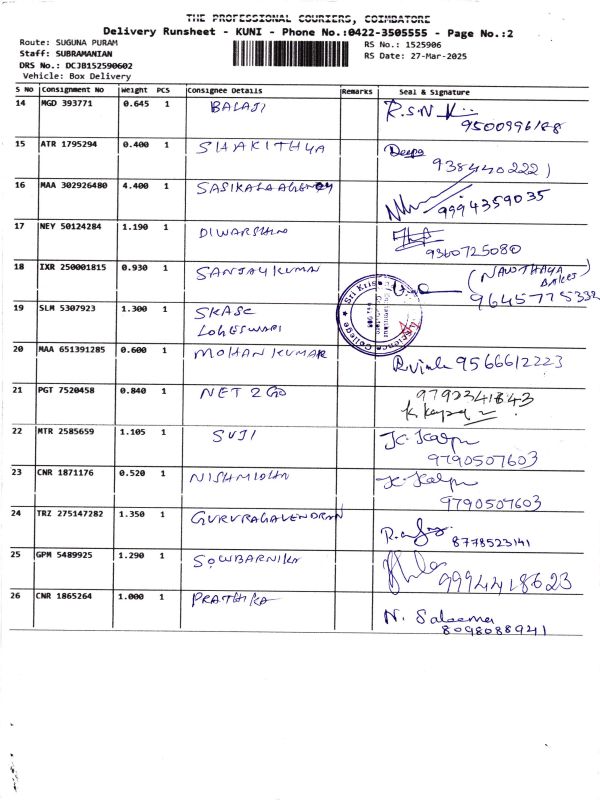 THE PROFESSIONAL COURIERS, COIMBATORE
Delivery Runsheet - KUNI - Phone No.:0422-3505555 - Page No.:2
Route: SUGUNA PURAM
RS No.: 1525906
Staff: SUBRAMANIAN
RS Date: 27-Mar-2025
DRS No.: DCJB152590602
Vehicle: Box Delivery
S No Consignment No Weight PCS Consignee Details Remarks Seal & Signature
14 MGD 393771 0.645 1 BALAJI R.S.N
9500996188
15 ATR 1795294 0.400 1 SHAKITHYA Deepa
9384402221
16 MAA 302926480 4.400 1 SASIKALA AGENCY
9994359035
17 NEY 50124284 1.190 1 DIWARSHIN
9360725080
18 IXR 250001815 0.930 1 SANJAY KUMAR
9645775332
19 SLM 5307923 1.300 1 SKASC
LOGESWARI
Sri Krishna
Science College
20 MAA 651391285 0.600 1 MOHAN KUMAR 9566612223
21 PGT 7520458 0.840 1 NET 2 GO 9792341843
22 MTR 2585659 1.105 1 SUJI K. Kalpn
9790507603
23 CNR 1871176 0.520 1 K. Kalpn
9790507603
24 TRZ 275147282 1.350 1 GURURAGAVENDRAN
8778523141
25 GPM 5489925 1.290 1 SOWBARNIKA
9994418623
26 CNR 1865264 1.000 1 PRATHIKA
N. Saleema
8098088941